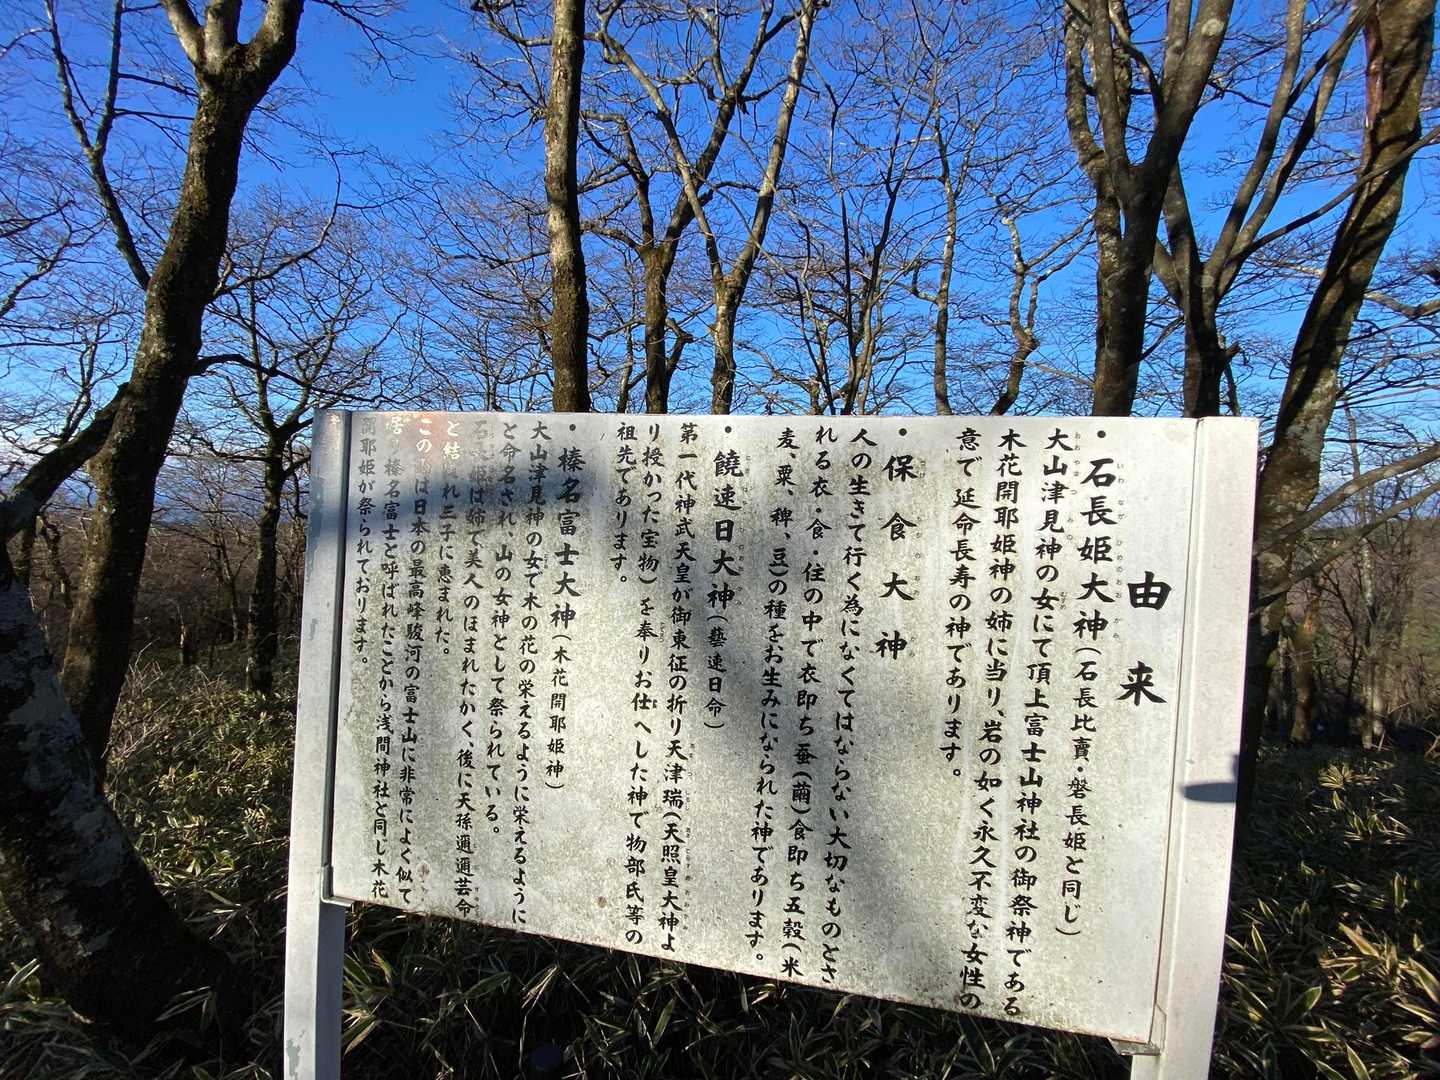 由来
・石長姫大神（石長比賣・磐長姫と同じ）
大山津見神の女にて頂上富士山神社の御祭神である
木花開耶姫神の姉に当り、岩の如く永久不変な女性の
意で延命長寿の神であります。
・保食大神
人の生きて行く為になくてはならない大切なものとさ
れる衣・食・住の中で衣即ち蚕（繭）食即ち五穀（米
麦、粟、稗、豆）の種をお生みになられた神であります。
・饒速日大神（藝速日命）
第一代神武天皇が御東征の折り天津瑞（天照皇大神よ
り授かった宝物）を奉りお仕へした神で物部氏等の
祖先であります。
・榛名富士大神（木花開耶姫神）
大山津見神の女で木の花の栄えるように栄えるように
と命名され、山の女神として祭られている。
石長姫は姉で美人のほまれたかく、後に天孫邇邇芸命
と結ばれ三子に恵まれた。
この は日本の最高峰駿河の富士山に非常によく似て
居り榛名富士と呼ばれたことから浅間神社と同じ木花
開耶姫が祭られております。